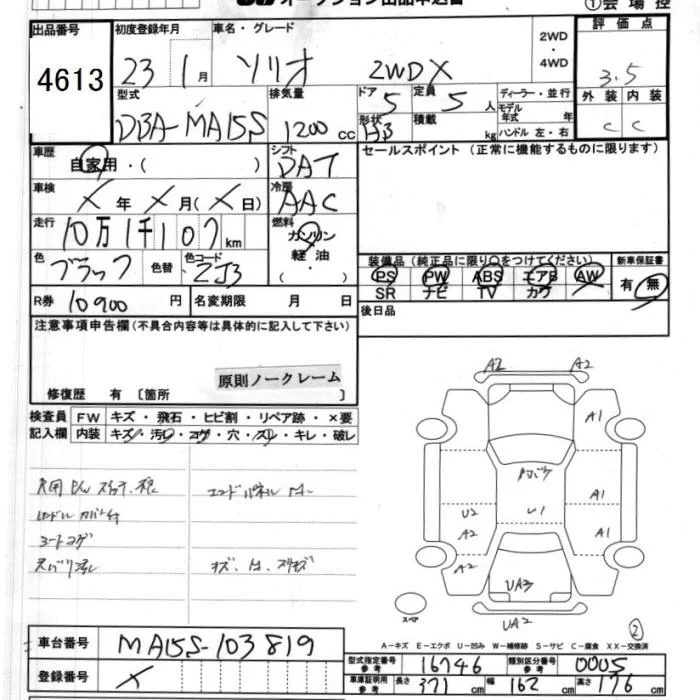 オークション出品申込書
①会場控
出品番号 4613
初度登録年月 23 1月
車名・グレード ソリオ 2WD X
2WD・4WD
評価点 3.5
外装 C 内装 C
型式 DBA-MA15S
排気量 1200cc
ドア 5 形状 HB
定員 5人 積載 kg
ディーラー・並行
モデル年式 年
ハンドル 左・右
車歴 自家用・( )
シフト DAT
セールスポイント(正常に機能するものに限ります)
車検 X年X月(X日)
冷房 AAC
走行 10万1千107km
燃料 ガソリン 軽油 ・( )
色 ブラック 色替 色コード ZJ3
装備品(純正品に限り○をつけてください)
PS PW ABS エアB AW
SR ナビ TV カワ
新車保証書 有・無
R券 10900円 名変期限 月 日
後日品
注意事項申告欄(不具合内容等は具体的に記入して下さい)
原則ノークレーム
修復歴 有〔箇所 〕
検査員記入欄 FW キズ・飛石・ヒビ割・リペア跡・×要
内装 キズ・汚レ・コゲ・穴・スレ・キレ・破レ
エンドパネル
シートコゲ
A2 A2
A1
A1
U2
A2 A1
A2
UA3
UA2
スペア
②
A-キズ E-エクボ U-凹み W-補修跡 S-サビ C-腐食 XX-交換済
車台番号 MA15S-103819
登録番号 X
型式指定番号 参考 16746 類別区分番号 参考 0005
車庫証明用 参考 長さ 371cm 幅 162cm 高さ 176cm